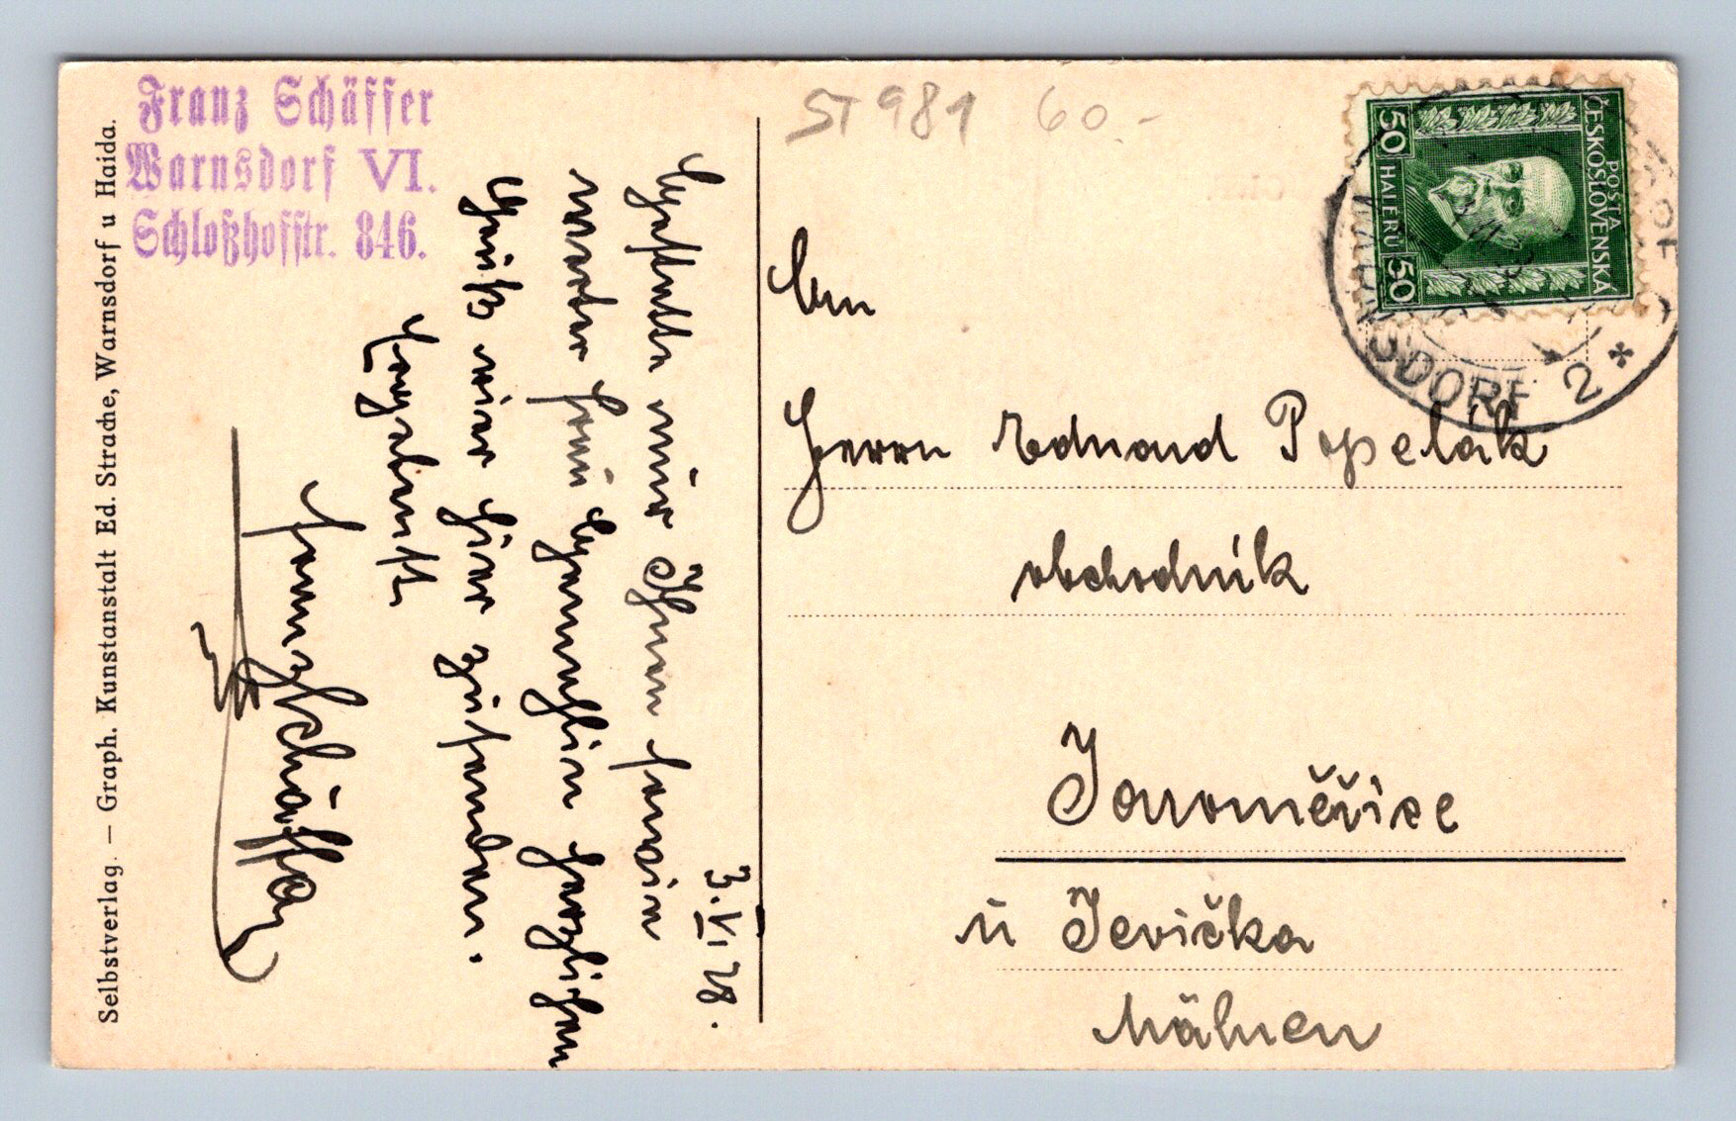 Franz Schäffer
Warnsdorf VI.
Schloßhofstr. 846.
Selbstverlag. — Graph. Kunstanstalt Ed. Strache, Warnsdorf u Haida.
3.VI 28.
Gestatte mir Ihnen
werter Herr Gemahlin herzlichen
Gruß von hier zusenden.
Hochachtungsvoll
Franz Schäffer
ST 981 60.-
POŠTA
ČESKOSLOVENSKÁ
50 HALÉŘŮ 50
WARNSDORF 2
An
Herrn Eduard Popelák
obchodník
Jaroměřice
u Jevíčka
Mähren